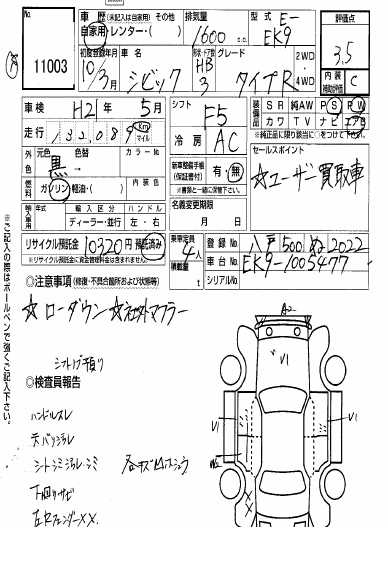 No.
11003
車歴 (未記入は自家用) その他
自家用・レンター・( )
排気量
1600 c.c.
型式
E-
EK9
評価点
3.5
初度登録年月
10/3月
車名
シビック
形状・ドア数
HB
3
グレード
タイプR
2WD
4WD
内装
補助評価
C
車検
H21年5月
シフト
F5
装備品
SR 純AW PS PW
カワ TV ナビ エアB
※純正品に限り該当に○をつけて下さい
走行
132089
km
マイル
冷房
AC
セールスポイント
☆ユーザー買取車
外色
元色
黒
色替
カラーNo.
燃料
ガソリン・軽油・( )
内装色
新車整備手帳
(保証書付)
有・無
※書類と一緒に保管して下さい
輸入車用
輸入区分
ハンドル
ディーラー・並行
左・右
名義変更期限
月 日
リサイクル預託金
10320円
預託済み
※リサイクル預託金に資金管理料金は含まれていません。
乗車定員
4人
積載量
t
登録No.
八戸500ぬ2022
車台No.
EK9-1005477
シリアルNo.
◎注意事項 (修復・不具合箇所および状態等)
☆ローダウン ☆社外マフラー
◎検査員報告
ハンドルスレ
下廻りサビ
左Rフェンダー××
A2
V1
V1
V1
X
X
※ご記入の際はボールペンで強くご記入下さい。